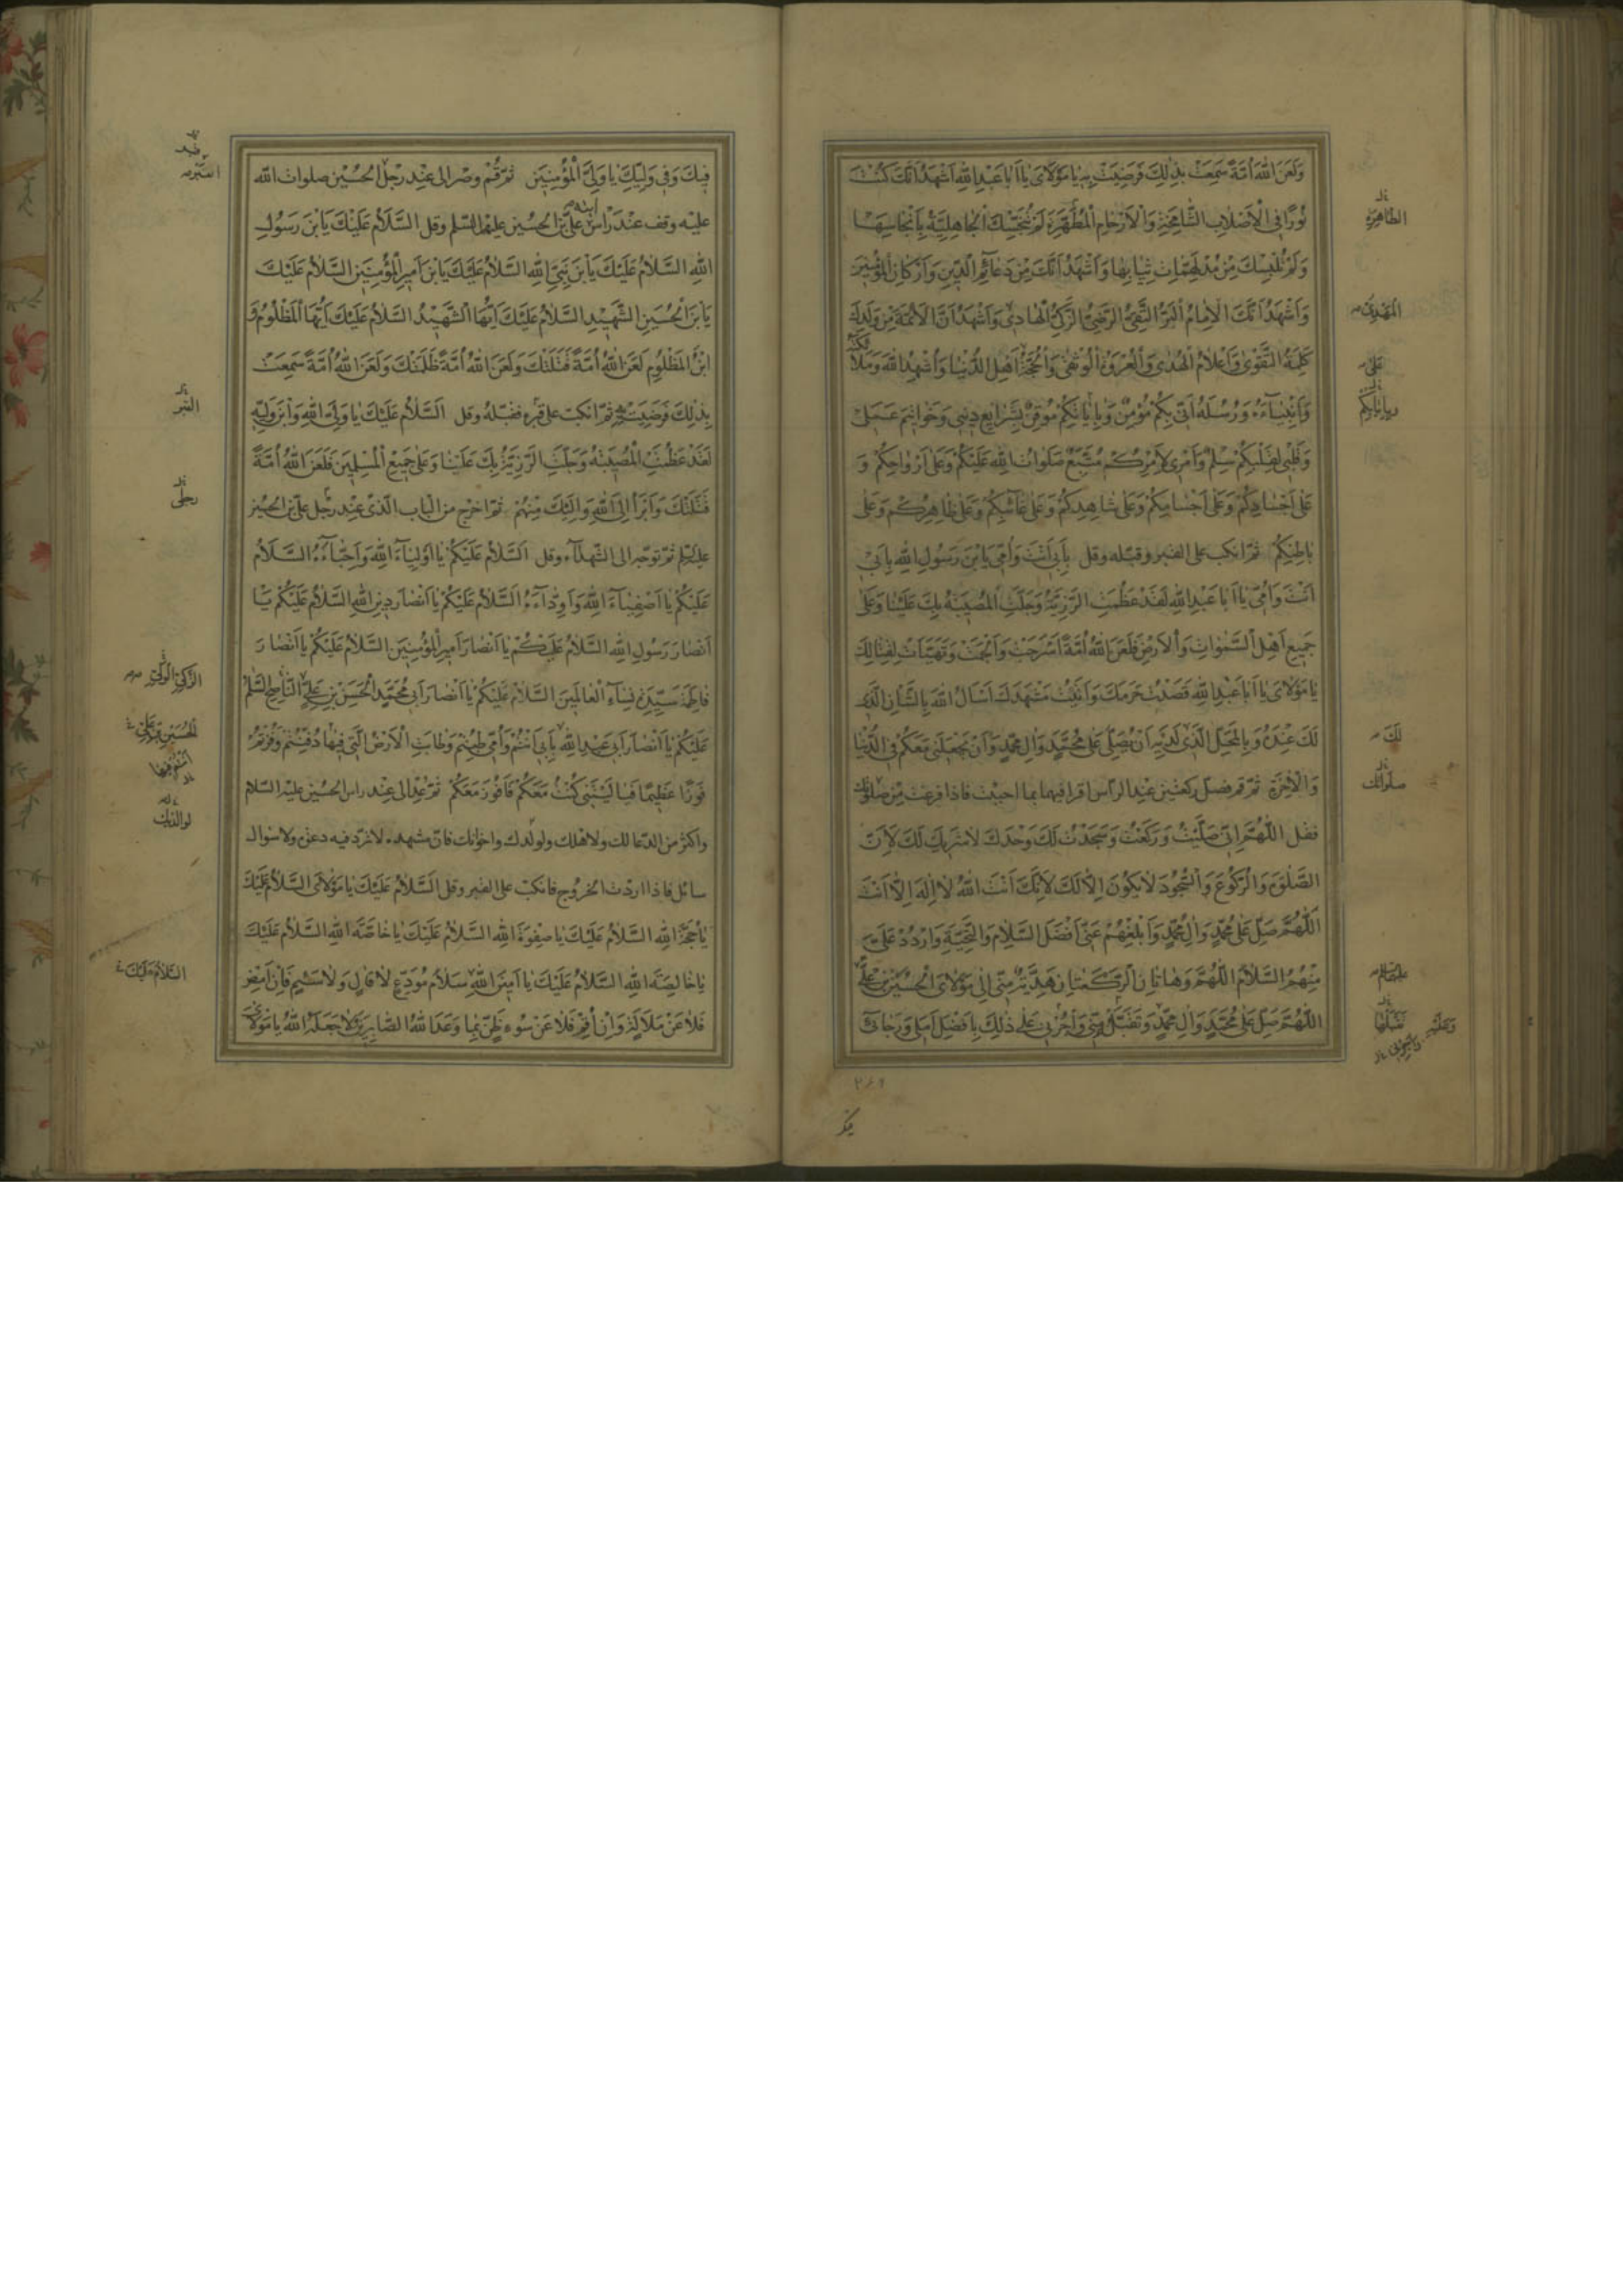 وَلَعَنَ اللهُ اُمَّةً سَمِعَتْ بِذٰلِكَ فَرَضِيَتْ بِهِ يٰا مَوْلٰاىَ يٰا اَبٰا عَبْدِ اللهِ اَشْهَدُ اَنَّكَ كُنْتَ
نُورًا فِي الْاَصْلٰابِ الشّٰامِخَةِ وَالْاَرْحٰامِ الْمُطَهَّرَةِ لَمْ تُنَجِّسْكَ الْجٰاهِلِيَّةُ بِاَنْجٰاسِهٰا
وَلَمْ تُلْبِسْكَ مِنْ مُدْلَهِمّٰاتِ ثِيٰابِهٰا وَاَشْهَدُ اَنَّكَ مِنْ دَعٰائِمِ الدّٖينِ وَاَرْكٰانِ الْمُؤْمِنٖينَ
وَاَشْهَدُ اَنَّكَ الْاِمٰامُ الْبَرُّ التَّقِىُّ الرَّضِىُّ الزَّكِىُّ الْهٰادِى وَاَشْهَدُ اَنَّ الْاَئِمَّةَ مِنْ وُلْدِكَ
كَلِمَةُ التَّقْوٰى وَاَعْلٰامُ الْهُدٰى وَالْعُرْوَةُ الْوُثْقٰى وَالْحُجَّةُ عَلٰى اَهْلِ الدُّنْيٰا وَاُشْهِدُ اللهَ وَمَلٰائِكَتَهُ
وَاَنْبِيٰآءَهُ وَرُسُلَهُ اَنّٖى بِكُمْ مُؤْمِنٌ وَبِاِيٰابِكُمْ مُوقِنٌ بِشَرٰايِعِ دٖينٖى وَخَوٰاتٖيمِ عَمَلٖى
وَقَلْبٖى لِقَلْبِكُمْ سِلْمٌ وَاَمْرٖى لِاَمْرِكُمْ مُتَّبِعٌ صَلَوٰاتُ اللهِ عَلَيْكُمْ وَعَلٰى اَرْوٰاحِكُمْ وَ
عَلٰى اَجْسٰادِكُمْ وَعَلٰى اَجْسٰامِكُمْ وَعَلٰى شٰاهِدِكُمْ وَعَلٰى غٰآئِبِكُمْ وَعَلٰى ظٰاهِرِكُمْ وَعَلٰى
بٰاطِنِكُمْ ثمّ انكب على القبر وقبّله وقل بِاَبٖى اَنْتَ وَاُمّٖى يَابْنَ رَسُولِ اللهِ بِاَبٖى
اَنْتَ وَاُمّٖى يٰا اَبٰا عَبْدِ اللهِ لَقَدْ عَظُمَتِ الرَّزِيَّةُ وَجَلَّتِ الْمُصٖيبَةُ بِكَ عَلَيْنٰا وَعَلٰى
جَمٖيعِ اَهْلِ السَّمٰوٰاتِ وَالْاَرْضِ فَلَعَنَ اللهُ اُمَّةً اَسْرَجَتْ وَاَلْجَمَتْ وَتَهَيَّاَتْ لِقِتٰالِكَ
يٰا مَوْلٰاىَ يٰا اَبٰا عَبْدِ اللهِ قَصَدْتُ حَرَمَكَ وَاَتَيْتُ مَشْهَدَكَ اَسْاَلُ اللهَ بِالشَّاْنِ الَّذٖى
لَكَ عِنْدَهُ وَبِالْمَحَلِّ الَّذٖى لَكَ لَدَيْهِ اَنْ يُصَلِّىَ عَلٰى مُحَمَّدٍ وَاٰلِ مُحَمَّدٍ وَاَنْ يَجْعَلَنٖى مَعَكُمْ فِي الدُّنْيٰا
وَالْاٰخِرَةِ ثمّ قم فصلّ ركعتين عند الرّأس اقرأ فيهما بما احببت فاذا فرغت من صلوتك
فقل اللّٰهُمَّ اِنّٖى صَلَّيْتُ وَرَكَعْتُ وَسَجَدْتُ لَكَ وَحْدَكَ لٰا شَرٖيكَ لَكَ لِاَنَّ
الصَّلٰوةَ وَالرُّكُوعَ وَالسُّجُودَ لٰا يَكُونُ اِلّٰا لَكَ لِاَنَّكَ اَنْتَ اللهُ لٰا اِلٰهَ اِلّٰا اَنْتَ
اَللّٰهُمَّ صَلِّ عَلٰى مُحَمَّدٍ وَاٰلِ مُحَمَّدٍ وَاَبْلِغْهُمْ عَنّٖى اَفْضَلَ السَّلٰامِ وَالتَّحِيَّةِ وَارْدُدْ عَلَىَّ
مِنْهُمُ السَّلٰامَ اَللّٰهُمَّ وَهٰاتٰانِ الرَّكْعَتٰانِ هَدِيَّةٌ مِنّٖى اِلٰى مَوْلٰاىَ الْحُسَيْنِ بْنِ عَلِىٍّ
اَللّٰهُمَّ صَلِّ عَلٰى مُحَمَّدٍ وَاٰلِ مُحَمَّدٍ وَتَقَبَّلْ مِنّٖى وَاْجُرْنٖى عَلٰى ذٰلِكَ بِاَفْضَلِ اَمَلٖى وَرَجٰائٖى
الطّاهِرَةِ
الْمَهْدِىُّ
لَكَ
صلواتك
فٖيكَ وَفٖى وَلِيِّكَ يٰا وَلِىَّ الْمُؤْمِنٖينَ ثمّ قم وصر الى عند رجل الحسين صلوات الله
عليه وقف عند رأس علىّ بن الحسين عليهما السّلم وقل السَّلٰامُ عَلَيْكَ يَابْنَ رَسُولِ
اللهِ السَّلٰامُ عَلَيْكَ يَابْنَ نَبِىِّ اللهِ السَّلٰامُ عَلَيْكَ يَابْنَ اَمٖيرِ الْمُؤْمِنٖينَ السَّلٰامُ عَلَيْكَ
يَابْنَ الْحُسَيْنِ الشَّهٖيدِ السَّلٰامُ عَلَيْكَ اَيُّهَا الشَّهٖيدُ السَّلٰامُ عَلَيْكَ اَيُّهَا الْمَظْلُومُ وَ
ابْنُ الْمَظْلُومِ لَعَنَ اللهُ اُمَّةً قَتَلَتْكَ وَلَعَنَ اللهُ اُمَّةً ظَلَمَتْكَ وَلَعَنَ اللهُ اُمَّةً سَمِعَتْ
بِذٰلِكَ فَرَضِيَتْ بِهِ ثمّ انكبّ على قبره فقبّله وقل اَلسَّلٰامُ عَلَيْكَ يٰا وَلِىَّ اللهِ وَابْنَ وَلِيِّهِ
لَقَدْ عَظُمَتِ الْمُصٖيبَةُ وَجَلَّتِ الرَّزِيَّةُ بِكَ عَلَيْنٰا وَعَلٰى جَمٖيعِ الْمُسْلِمٖينَ فَلَعَنَ اللهُ اُمَّةً
قَتَلَتْكَ وَاَبْرَاُ اِلَى اللهِ وَاِلَيْكَ مِنْهُمْ ثمّ اخرج من الباب الّذى عند رجل علىّ بن الحسين
عليه السّلم ثمّ توجّه الى الشّهداء وقل اَلسَّلٰامُ عَلَيْكُمْ يٰا اَوْلِيٰآءَ اللهِ وَاَحِبّٰآءَهُ السَّلٰامُ
عَلَيْكُمْ يٰا اَصْفِيٰآءَ اللهِ وَاَوِدّٰآءَهُ السَّلٰامُ عَلَيْكُمْ يٰا اَنْصٰارَ دٖينِ اللهِ السَّلٰامُ عَلَيْكُمْ يٰا
اَنْصٰارَ رَسُولِ اللهِ السَّلٰامُ عَلَيْكُمْ يٰا اَنْصٰارَ اَمٖيرِ الْمُؤْمِنٖينَ السَّلٰامُ عَلَيْكُمْ يٰا اَنْصٰارَ
فٰاطِمَةَ سَيِّدَةِ نِسٰآءِ الْعٰالَمٖينَ السَّلٰامُ عَلَيْكُمْ يٰا اَنْصٰارَ اَبٖى مُحَمَّدٍ الْحَسَنِ بْنِ عَلِىٍّ النّٰاصِحِ السَّلٰامُ
عَلَيْكُمْ يٰا اَنْصٰارَ اَبٖى عَبْدِ اللهِ بِاَبٖى اَنْتُمْ وَاُمّٖى طِبْتُمْ وَطٰابَتِ الْاَرْضُ الَّتٖى فٖيهٰا دُفِنْتُمْ وَفُزْتُمْ
فَوْزًا عَظٖيمًا فَيٰا لَيْتَنٖى كُنْتُ مَعَكُمْ فَاَفُوزَ مَعَكُمْ ثمّ عد الى عند رأس الحسين عليه السلام
واكثر من الدّعا لك ولاهلك ولولدك واخوانك فانّ مشهده لا تردّ فيه دعوة ولا سؤال
سائل فاذا اردت الخروج فانكبّ على القبر وقل اَلسَّلٰامُ عَلَيْكَ يٰا مَوْلٰاىَ السَّلٰامُ عَلَيْكَ
يٰا حُجَّةَ اللهِ السَّلٰامُ عَلَيْكَ يٰا صِفْوَةَ اللهِ السَّلٰامُ عَلَيْكَ يٰا خٰاصَّةَ اللهِ السَّلٰامُ عَلَيْكَ
يٰا خٰالِصَةَ اللهِ السَّلٰامُ عَلَيْكَ يٰا اَمٖينَ اللهِ سَلٰامَ مُوَدِّعٍ لٰا قٰالٍ وَلٰا سَئِمٍ فَاِنْ اَمْضِ
فَلٰا عَنْ مَلٰالَةٍ وَاِنْ اُقِمْ فَلٰا عَنْ سُوءِ ظَنٍّ بِمٰا وَعَدَ اللهُ الصّٰابِرٖينَ لٰا جَعَلَهُ اللهُ يٰا مَوْلٰاىَ
القبر
الحُسَيْنِ بْنِ عَلِىٍّ
لوالديك
السَّلٰامُ عَلَيْكَ